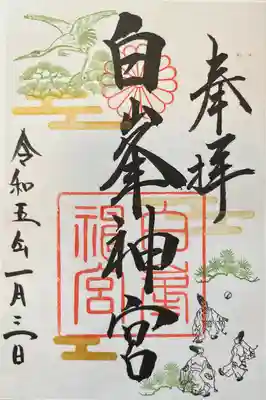 奉拝
白峯神宮
白峯神宮
令和五年一月三日